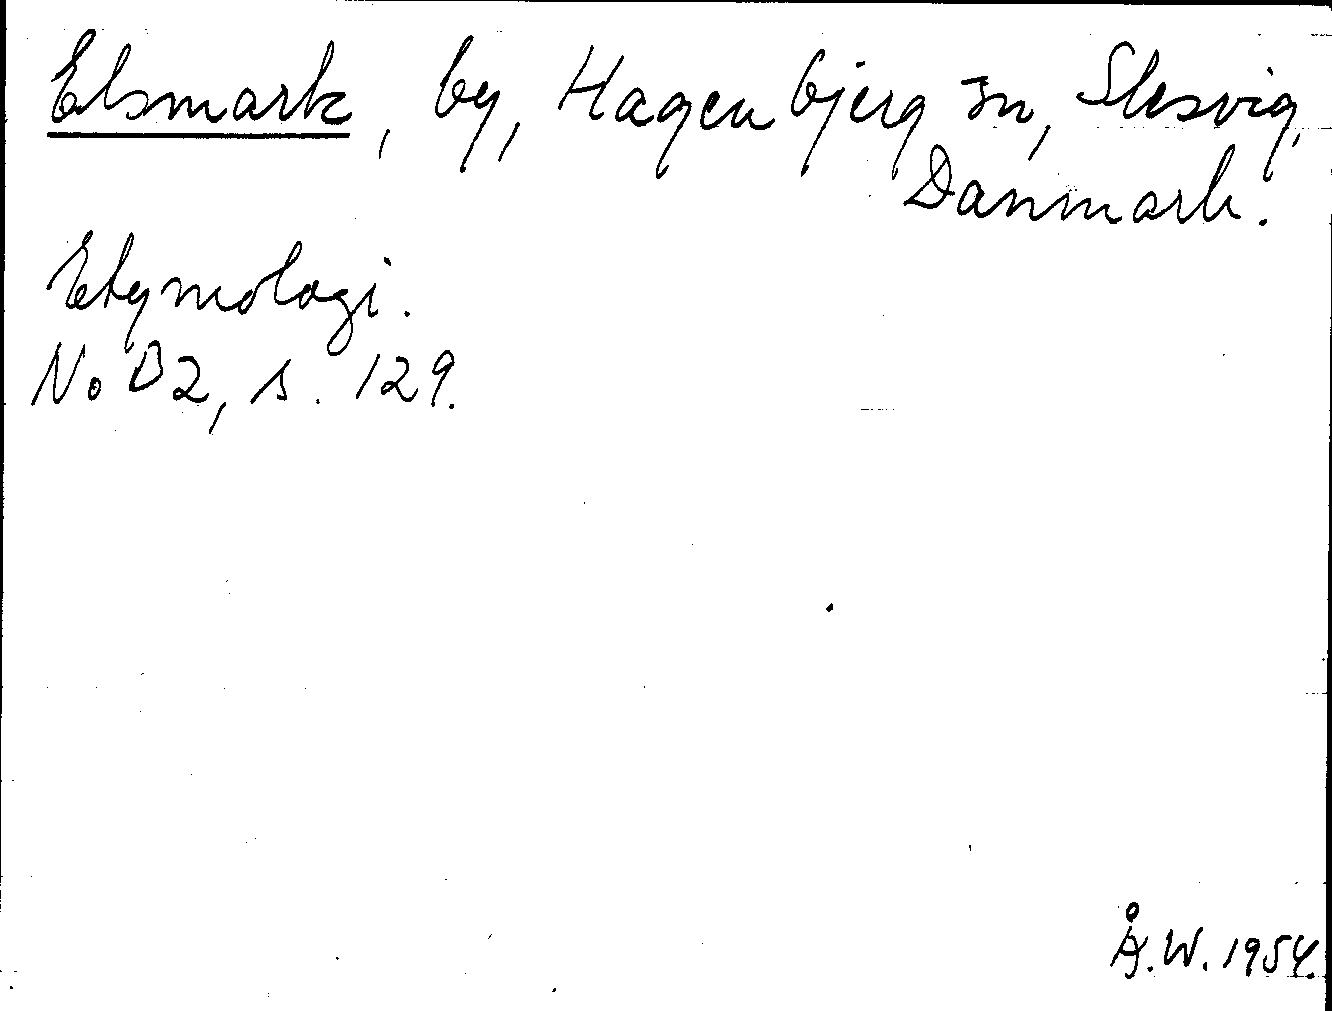 Elsmark, by, Hagenbjerg sn, Slesvig,
Danmark.
Etymologi.
NoB 2, s. 129.
Å.W. 1954.